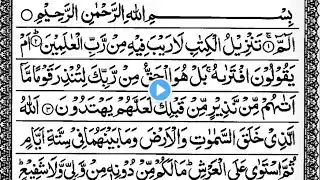 بِسْمِ اللهِ الرَّحْمٰنِ الرَّحِيْمِ
الٓمّٓ ۚ﴿۱﴾ تَنْزِيْلُ الْكِتٰبِ لَا رَيْبَ فِيْهِ مِنْ رَّبِّ الْعٰلَمِيْنَ ؕ﴿۲﴾ اَمْ
يَقُوْلُوْنَ افْتَرٰىهُ ۚ بَلْ هُوَ الْحَقُّ مِنْ رَّبِّكَ لِتُنْذِرَ قَوْمًا مَّاۤ
اَتٰىهُمْ مِّنْ نَّذِيْرٍ مِّنْ قَبْلِكَ لَعَلَّهُمْ يَهْتَدُوْنَ ﴿۳﴾ اَللهُ
الَّذِيْ خَلَقَ السَّمٰوٰتِ وَالْاَرْضَ وَمَا بَيْنَهُمَا فِيْ سِتَّةِ اَيَّامٍ
ثُمَّ اسْتَوٰى عَلَى الْعَرْشِ ؕ مَا لَكُمْ مِّنْ دُوْنِهٖ مِنْ وَّلِيٍّ وَّلَا شَفِيْعٍ ؕ